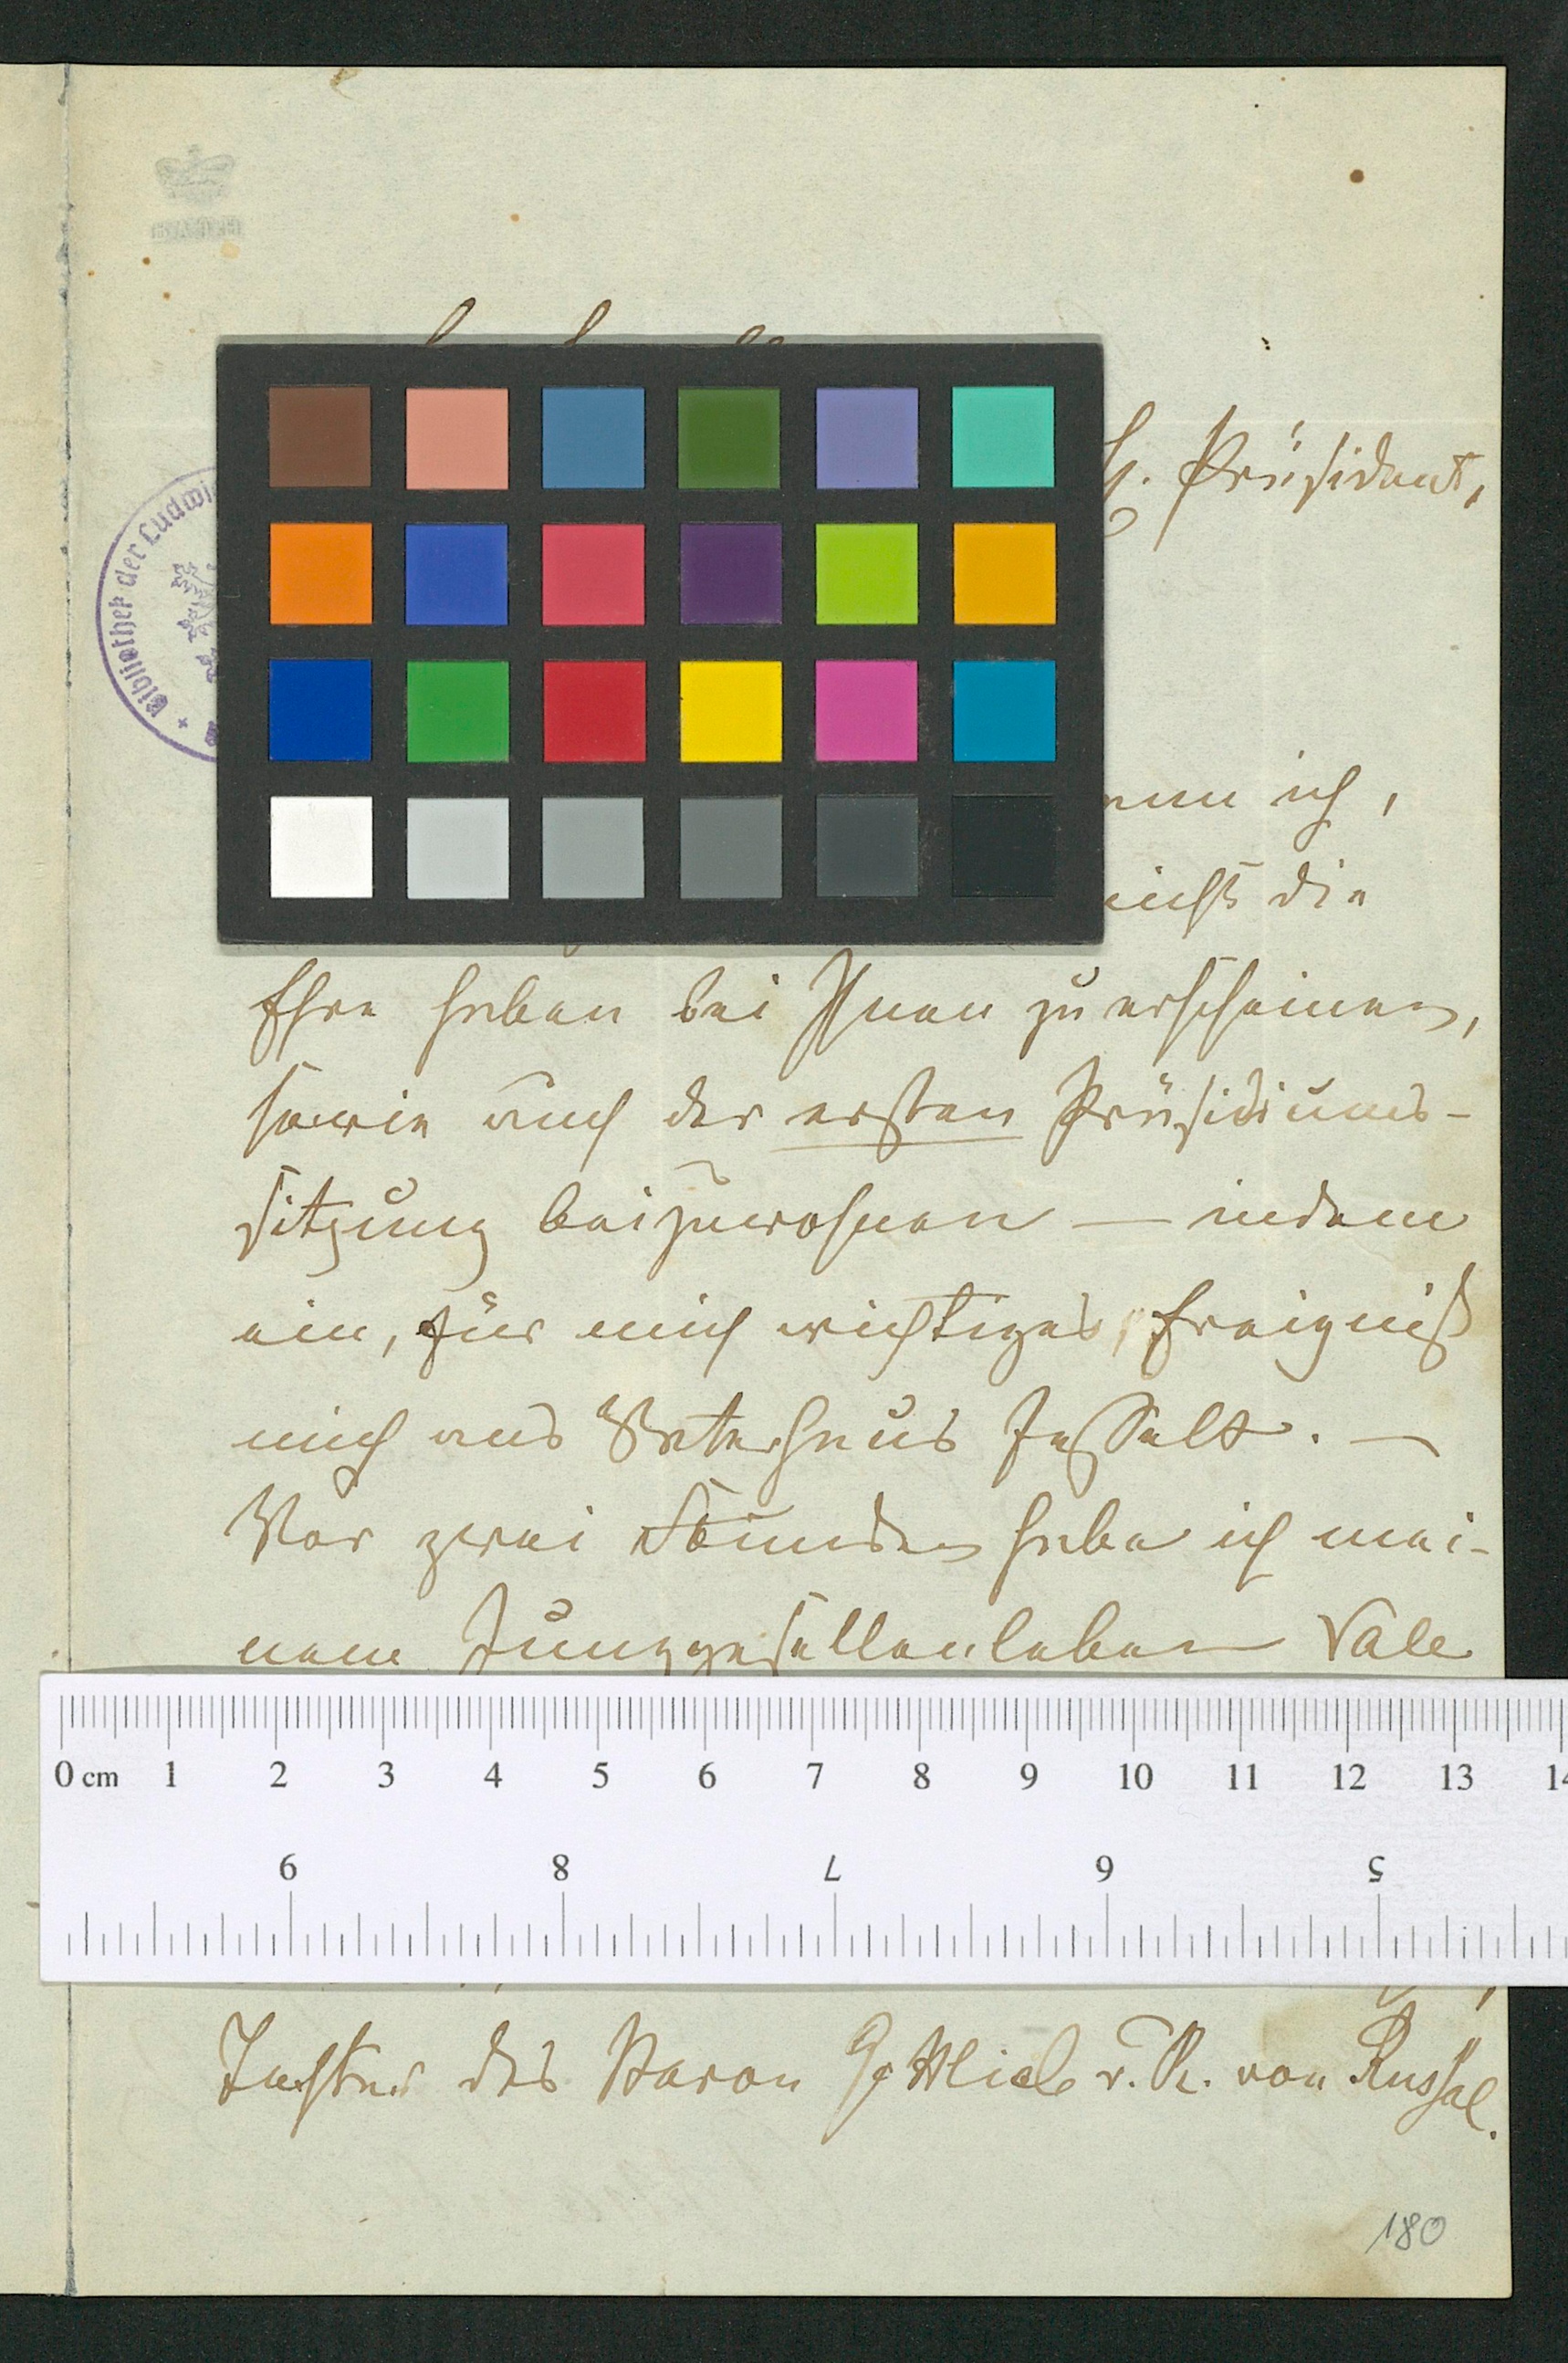 Bibliothek der Ludwi
H. Präsident,
ich,
nicht die
Ehre haben bei Ihnen zu erscheinen,
sowie auch der ersten Präsidiums-
sitzung beizuwohnen — indem
ein, für mich wichtiges, Ereigniß
mich ans Vaterhaus fesselt. —
Vor zwei Stunden habe ich mei-
nem Junggesellenleben Vale
0 cm 1 2 3 4 5 6 7 8 9 10 11 12 13 14
9 8 7 6 5
Tochter des Baron Gottlieb v. R. von
180